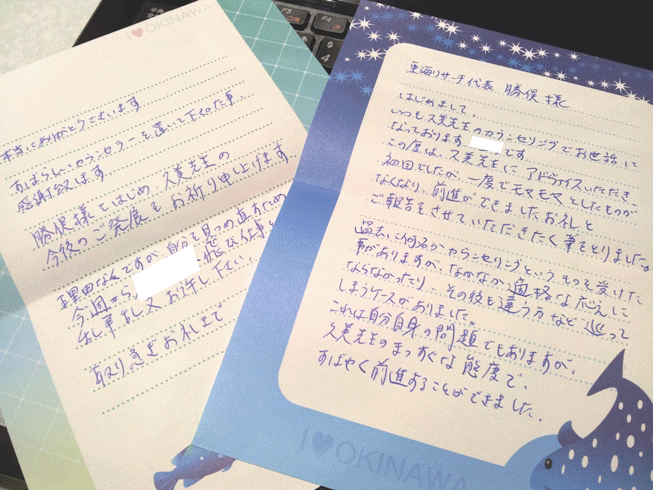 東海リサーチ代表 勝俣様
はじめまして。
いつも久美先生のカウンセリングでお世話に
なっております です
この度は、久美先生にアドヴァイスいただき、
初回でしたが、一度でモヤモヤとしたものが
なくなり、前進ができましたお礼と
ご報告をさせていただきたく筆をとりました。
過去に何名かカウンセリングというものを受けた
事がありますが、なかなか適格なよだんに
ならなかったり、その後も違う方など巡って
しまうケースがありました。
これは自分自身の問題でもありますが、
久美先生のまっすぐな態度で、
すばやく前進することができました。
I♥OKINAWA
I♥OKINAWA
本当にありがとうございます
すばらしいカウンセラーを置いて下さった事、
感謝致します
勝俣様をはじめ、久美先生の
今後のご発展をお祈り申し上げます。
理由なんですが、自分を見つめ直すため
今週から、 飛び仕事を
乱筆乱文お許し下さい。
取り急ぎお礼まで